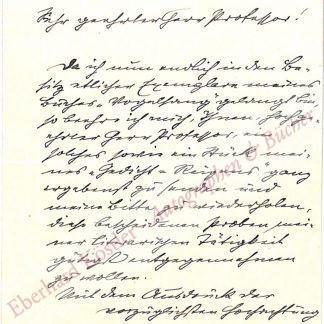 Sehr geehrter Herr Professor!
Da ich nun endlich in den Be-
sitz etlicher Exemplare meines
Buches „Vogelsang" gelangt bin,
so beehre ich mich, Ihnen, hochge-
ehrter Herr Professor, ein
solches sowie ein Stück mei-
nes „Gedicht"- ganz
ergebenst zu senden und
meine Bitte zu wiederholen,
diese bescheidenen Proben mei-
ner literarischen Tätigkeit
gütigst entgegennehmen
zu wollen.
Mit dem Ausdruck der
vorzüglichsten Hochachtung
Eberhard Köstler Autographen & Bücher